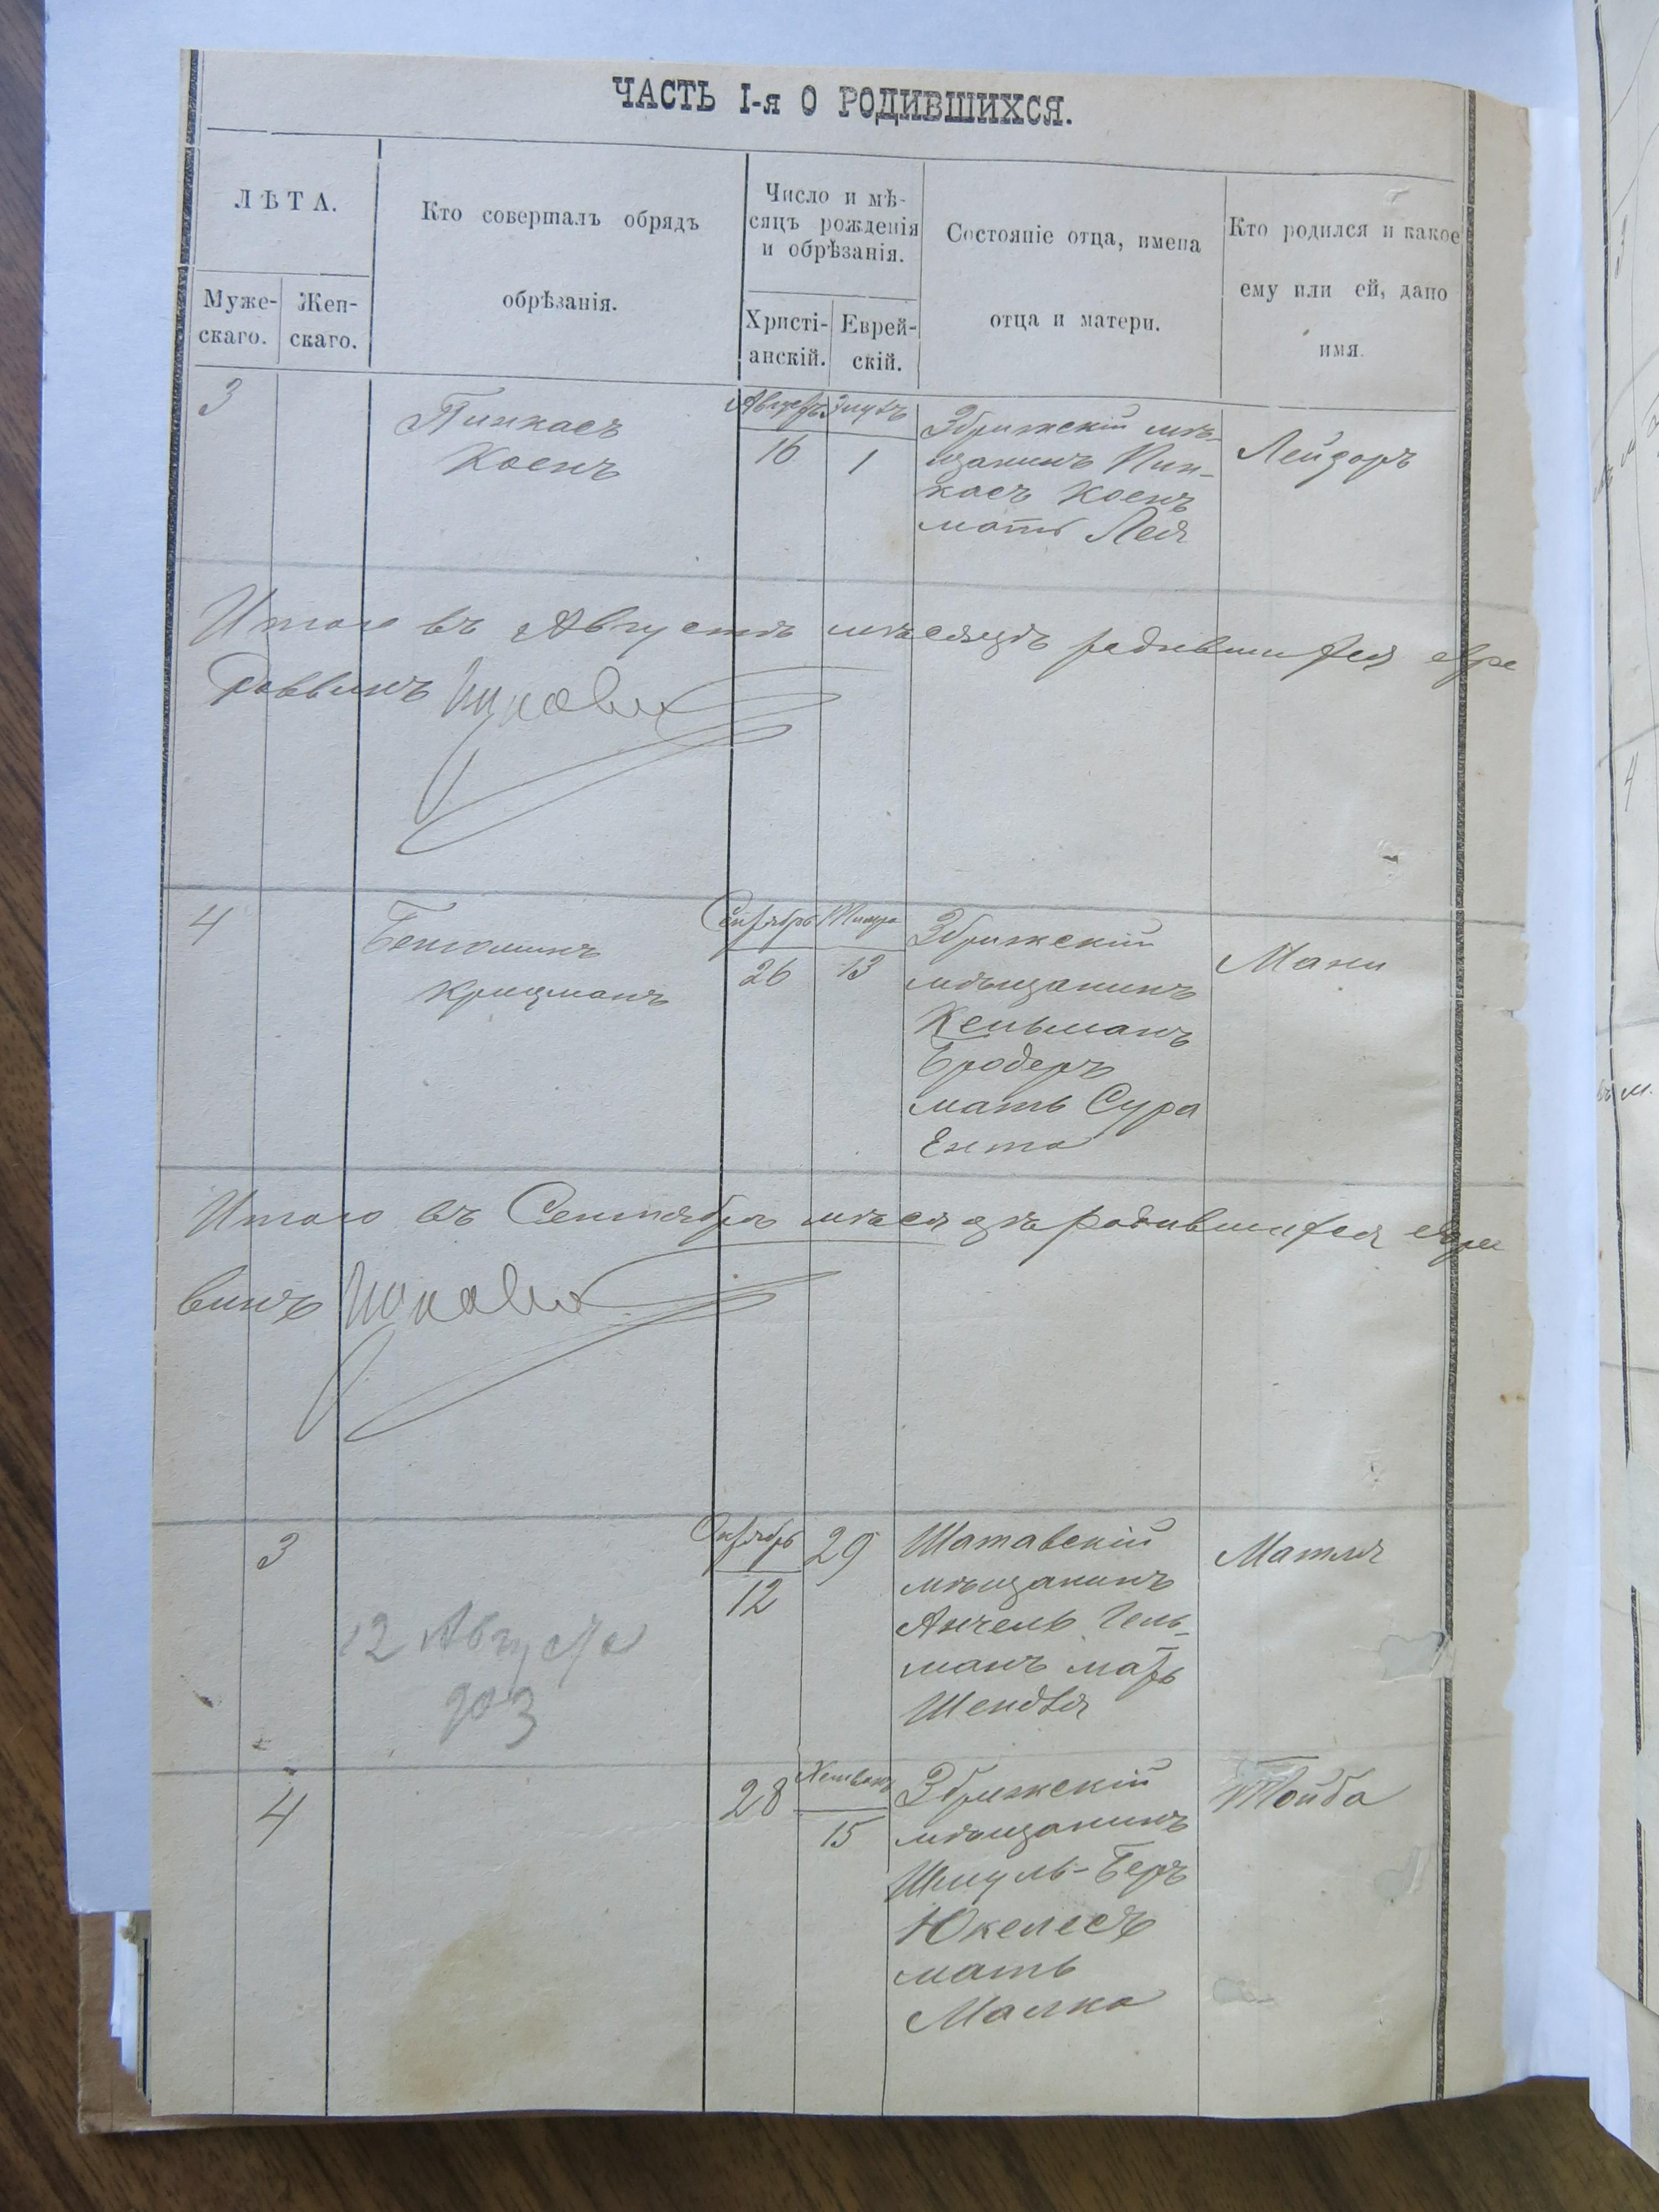 ЧАСТЬ I-я О РОДИВШИХСЯ.
ЛѢТА.
Муже-
скаго.
Жен-
скаго.
Кто совершалъ обрядъ
обрѣзанія.
Число и мѣ-
сяцъ рожденія
и обрѣзанія.
Христі-
анскій.
Еврей-
скій.
Состояніе отца, имена
отца и матери.
Кто родился и какое
ему или ей, дано
имя.
3
Пинкасъ
Коенъ
Августъ
16
Элулъ
1
Збрижскій мѣ-
щанинъ Пин-
касъ Коенъ
мать Лея
Лейзоръ
Итого въ Августѣ мѣсяцѣ родившихся
Раввинъ
4
Беніоминъ
Крицманъ
Сентябрь
26
Тишра
13
Збрижскій
мѣщанинъ
Кельманъ
Бродеръ
мать Сура
Ента
Мани
Итого въ Сентябрѣ мѣсяцѣ родившихся
винъ
3
Октябрь
12
29
Шатавскій
мѣщанинъ
Анчель Гель-
манъ мать
Шендля
Матля
12 Августа
903
4
28
Хешванъ
15
Збрижскій
мѣщанинъ
Шмуль-Беръ
Юкелесъ
мать
Малка
Тойба